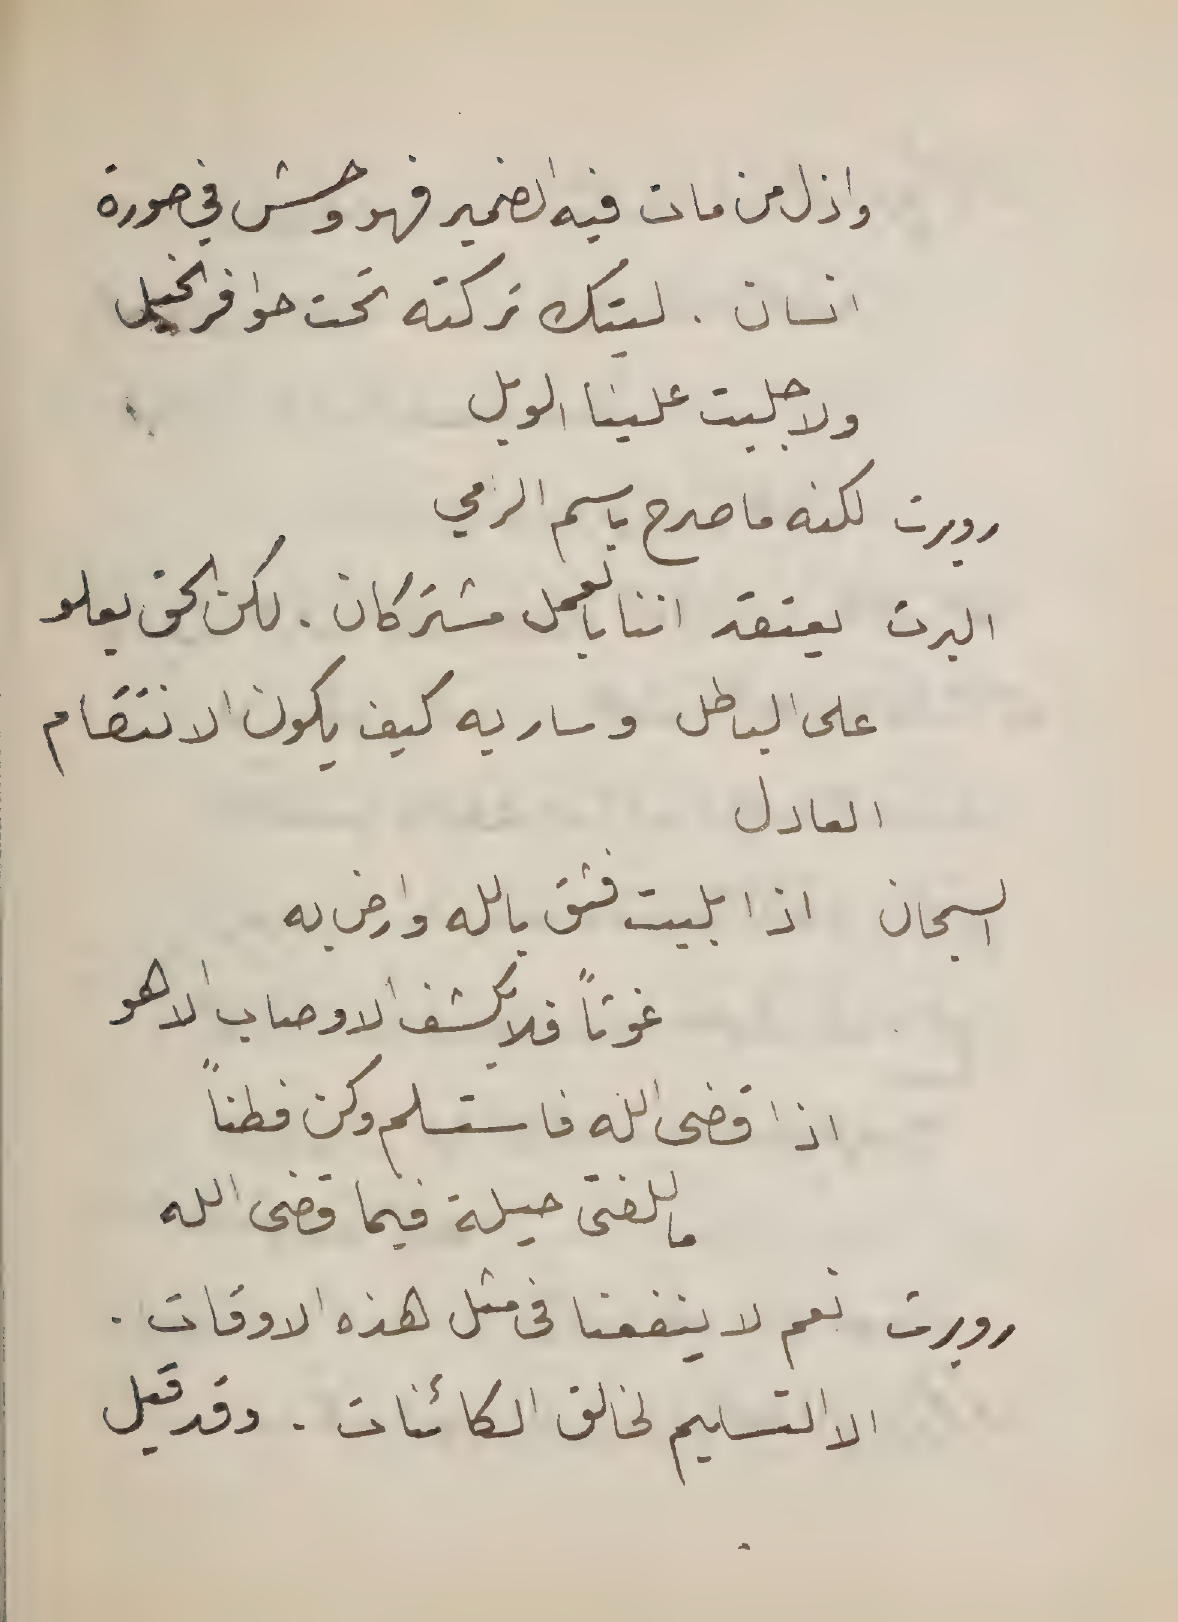 واذل من مات فيه الضمير فهو وحش في صورة
انسان . ليتك تركته تحت حوافر الخيل
ولا جلبت علينا الويل
روبرت لكنه ما صرح باسم الرامي
البرت يعتقد اننا بالعمل مشتركان . لكن الحق يعلو
على الباطل وساريه كيف يكون الانتقام
العادل
السجان اذا بليت فثق بالله وارض به
غوثاً فلا يكشف الاوصاب الا هو
اذا قضى الله فاستسلم وكن فطناً
ما للفتى حيلة فيما قضى الله
روبرت نعم لا ينفعنا في مثل هذه الاوقات .
الا التسليم لخالق الكائنات . وقد قيل